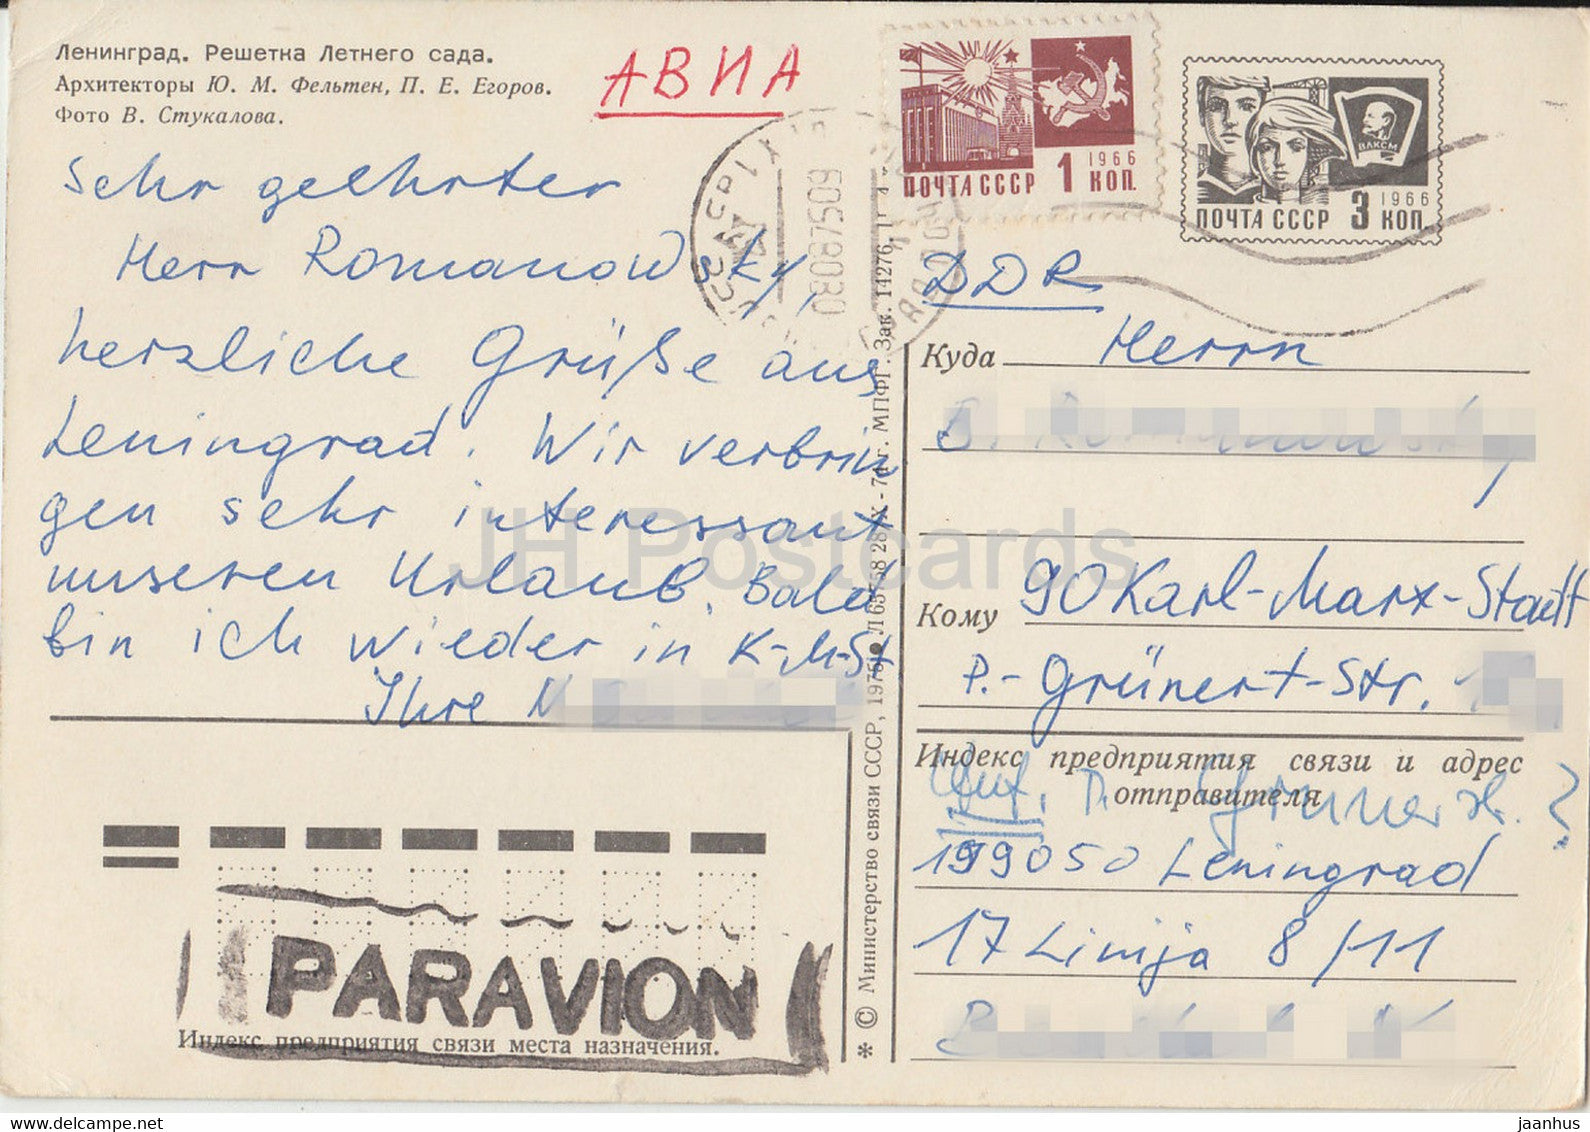 Ленинград. Решетка Летнего сада.
Архитекторы Ю. М. Фельтен, П. Е. Егоров.
Фото В. Стукалова.
АВИА
Sehr geehrter
Herr Romanowsky,
herzliche Grüße aus
Leningrad. Wir verbrin
gen sehr interessant
unseren Urlaub. Bald
bin ich wieder in K-M-St
Ihre
ПОЧТА СССР 1 1966 КОП.
ВЛКСМ
ПОЧТА СССР 3 1966 КОП.
DDR
Куда Herrn
Кому 90 Karl-Marx-Stadt
P.-Grünert-Str.
Индекс предприятия связи и адрес
отправителя
199050 Leningrad
17 Linija 8/11
PAR AVION
Индекс предприятия связи места назначения.
* © Министерство связи СССР, 1975
МПФГ. Зак. 14276.
JH Postcards
www.delcampe.net
jaanhus